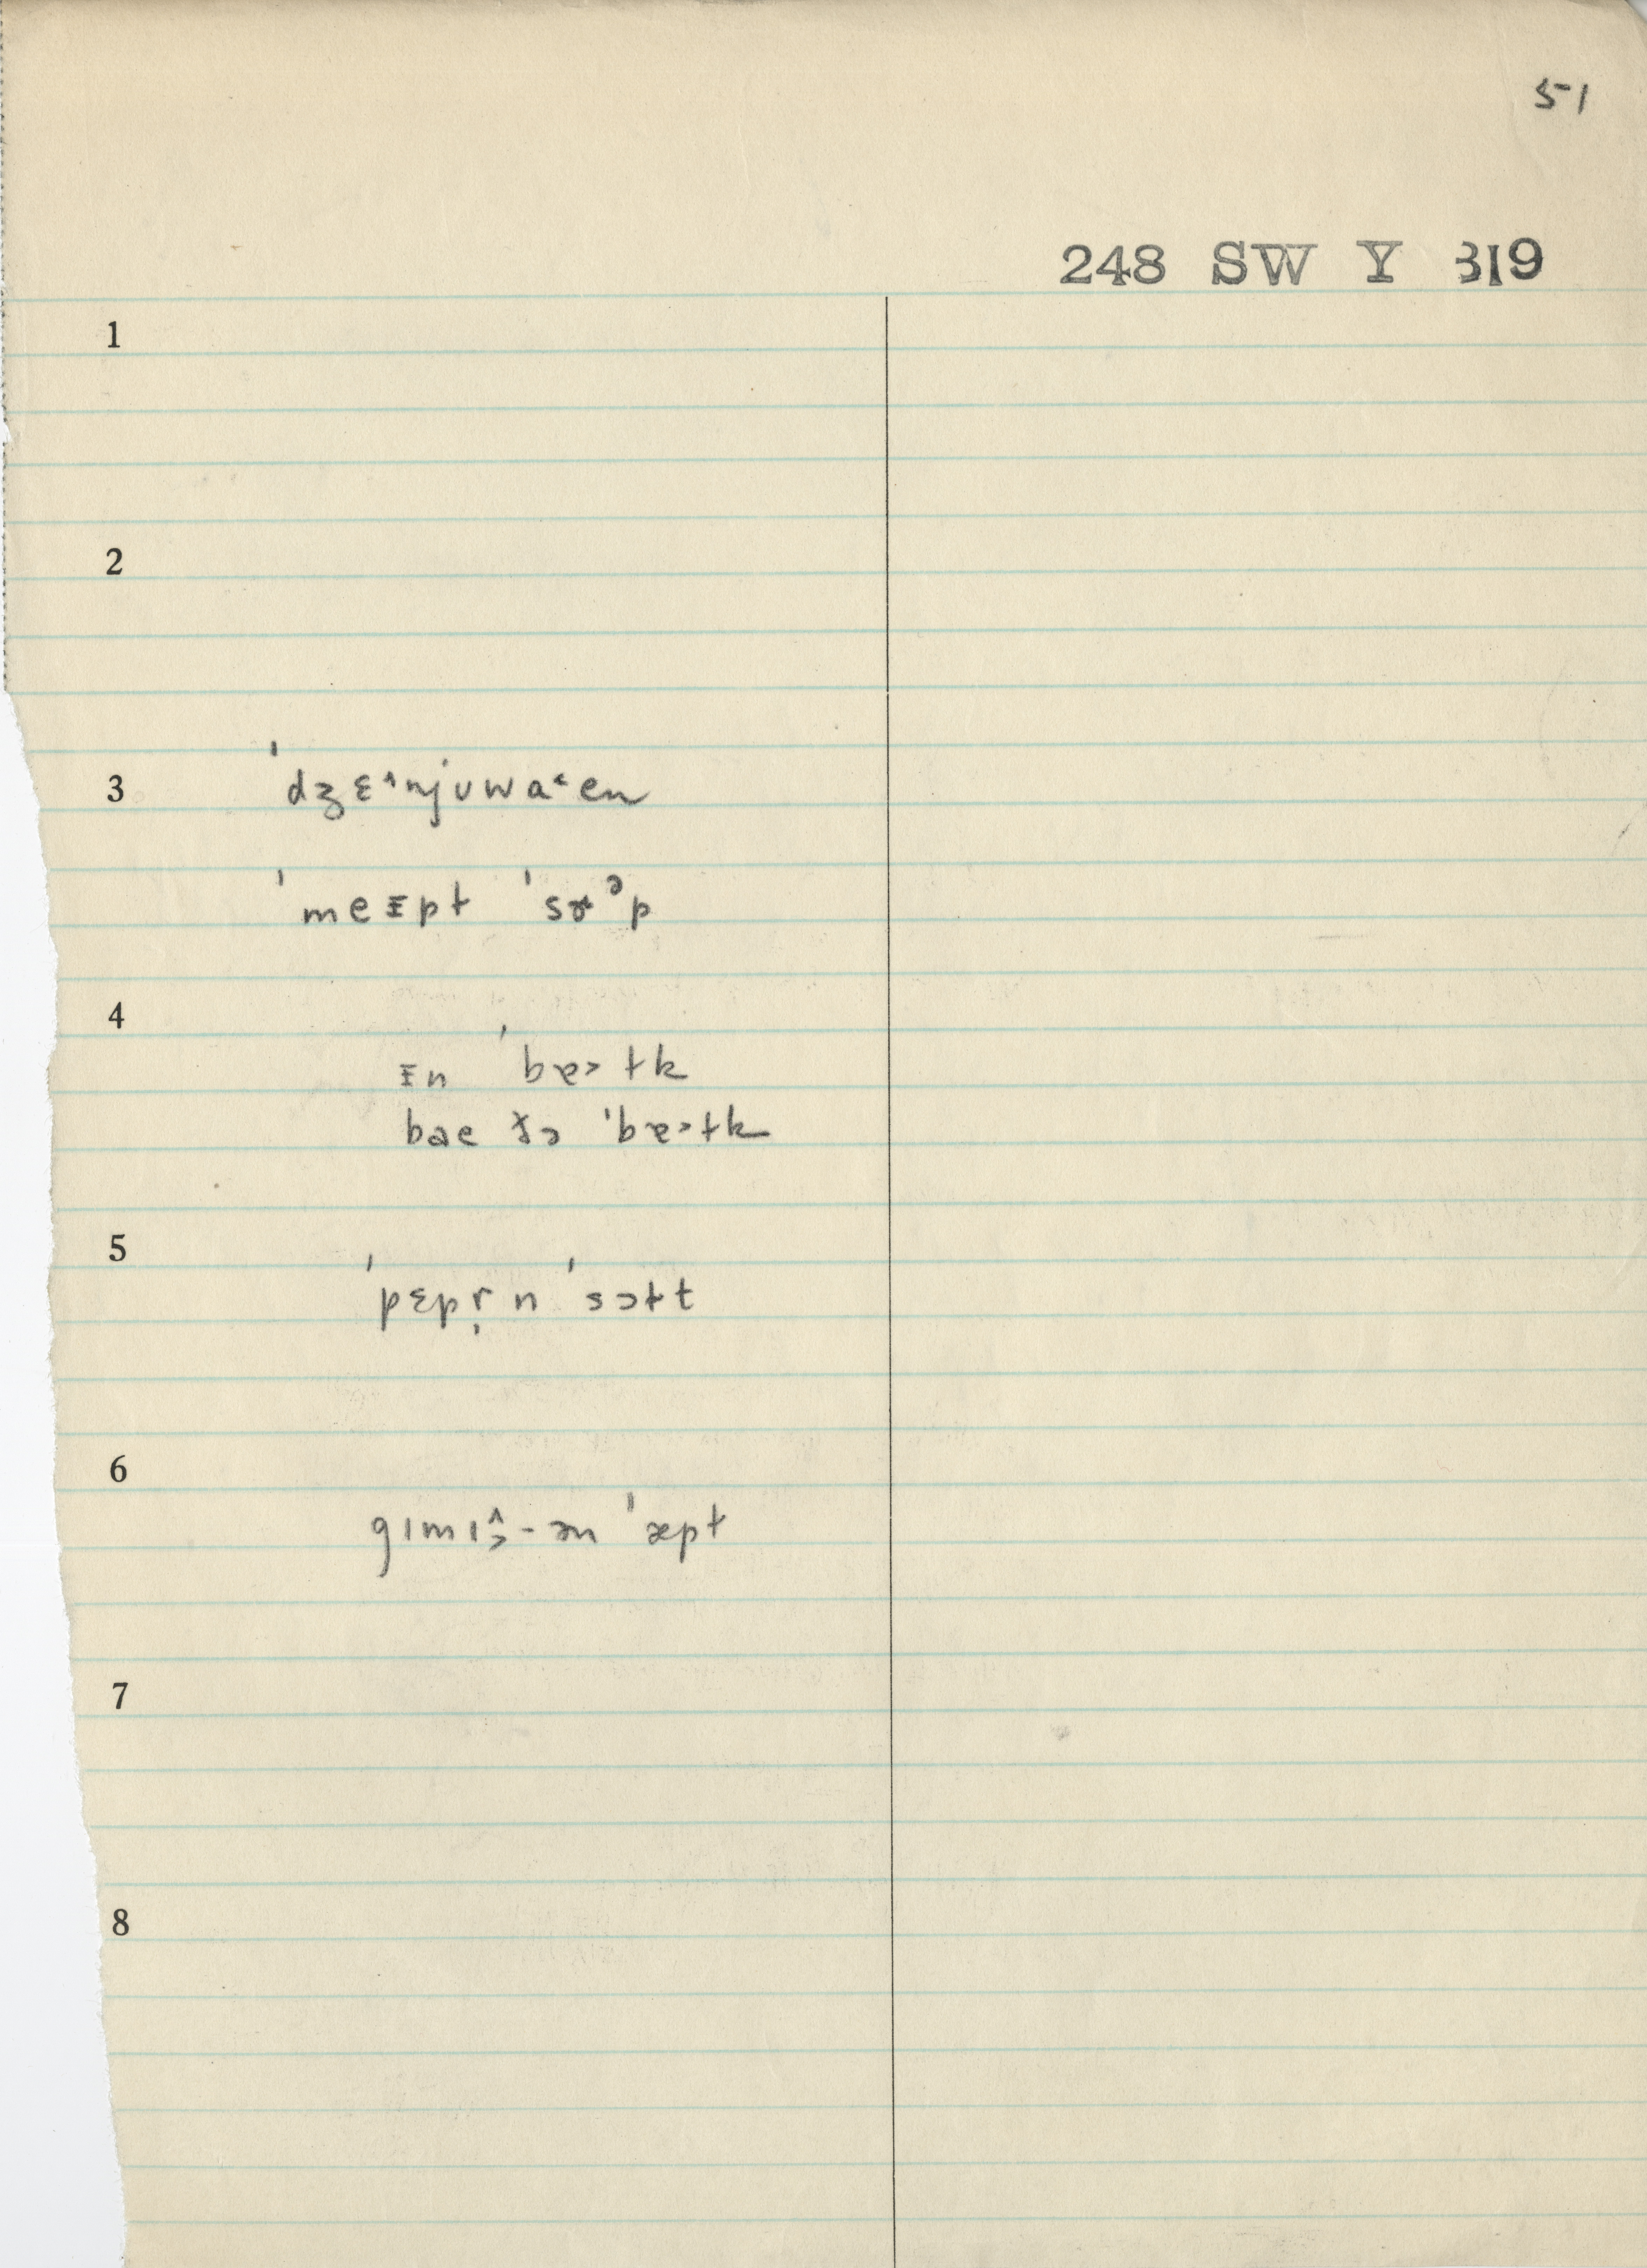 51
248 SW Y 319
1
2
3 ˈdʒɛ˄njuwa˂en
ˈmeɪpt ˈsɤᵊp
4 ɪn ˈbɐ˃tk
bae ðə ˈbɐ˃tk
5 ˈpɛpr̩n ˈsɔtt
6 gɪmɪ-ən ˈæpt
7
8